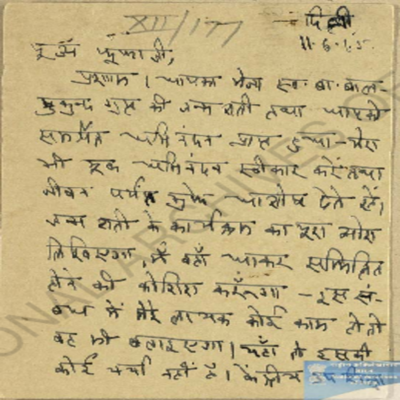 XII/177
दिल्ली
11-6-65
पूज्य फूफाजी,
प्रणाम। आपका भेजा स्व. बा. बाल-
मुकुन्द गुप्त की जन्म शती तथा आपको
समर्पित अभिनंदन प्राप्त हुआ - मेरा
भी एक अभिनंदन स्वीकार करें तथा
जीवन पर्यंत मुझे आशीष देते रहें।
जन्म शती के कार्यक्रम का पूरा ब्योरा
लिखिएगा, मैं वहाँ आकर सम्मिलित
होने की कोशिश करूँगा - इस सं-
बंध में मेरे लायक कोई काम हो तो
वह भी बताइएगा। यहाँ तो इसकी
कोई चर्चा नहीं है। केन्द्रीय